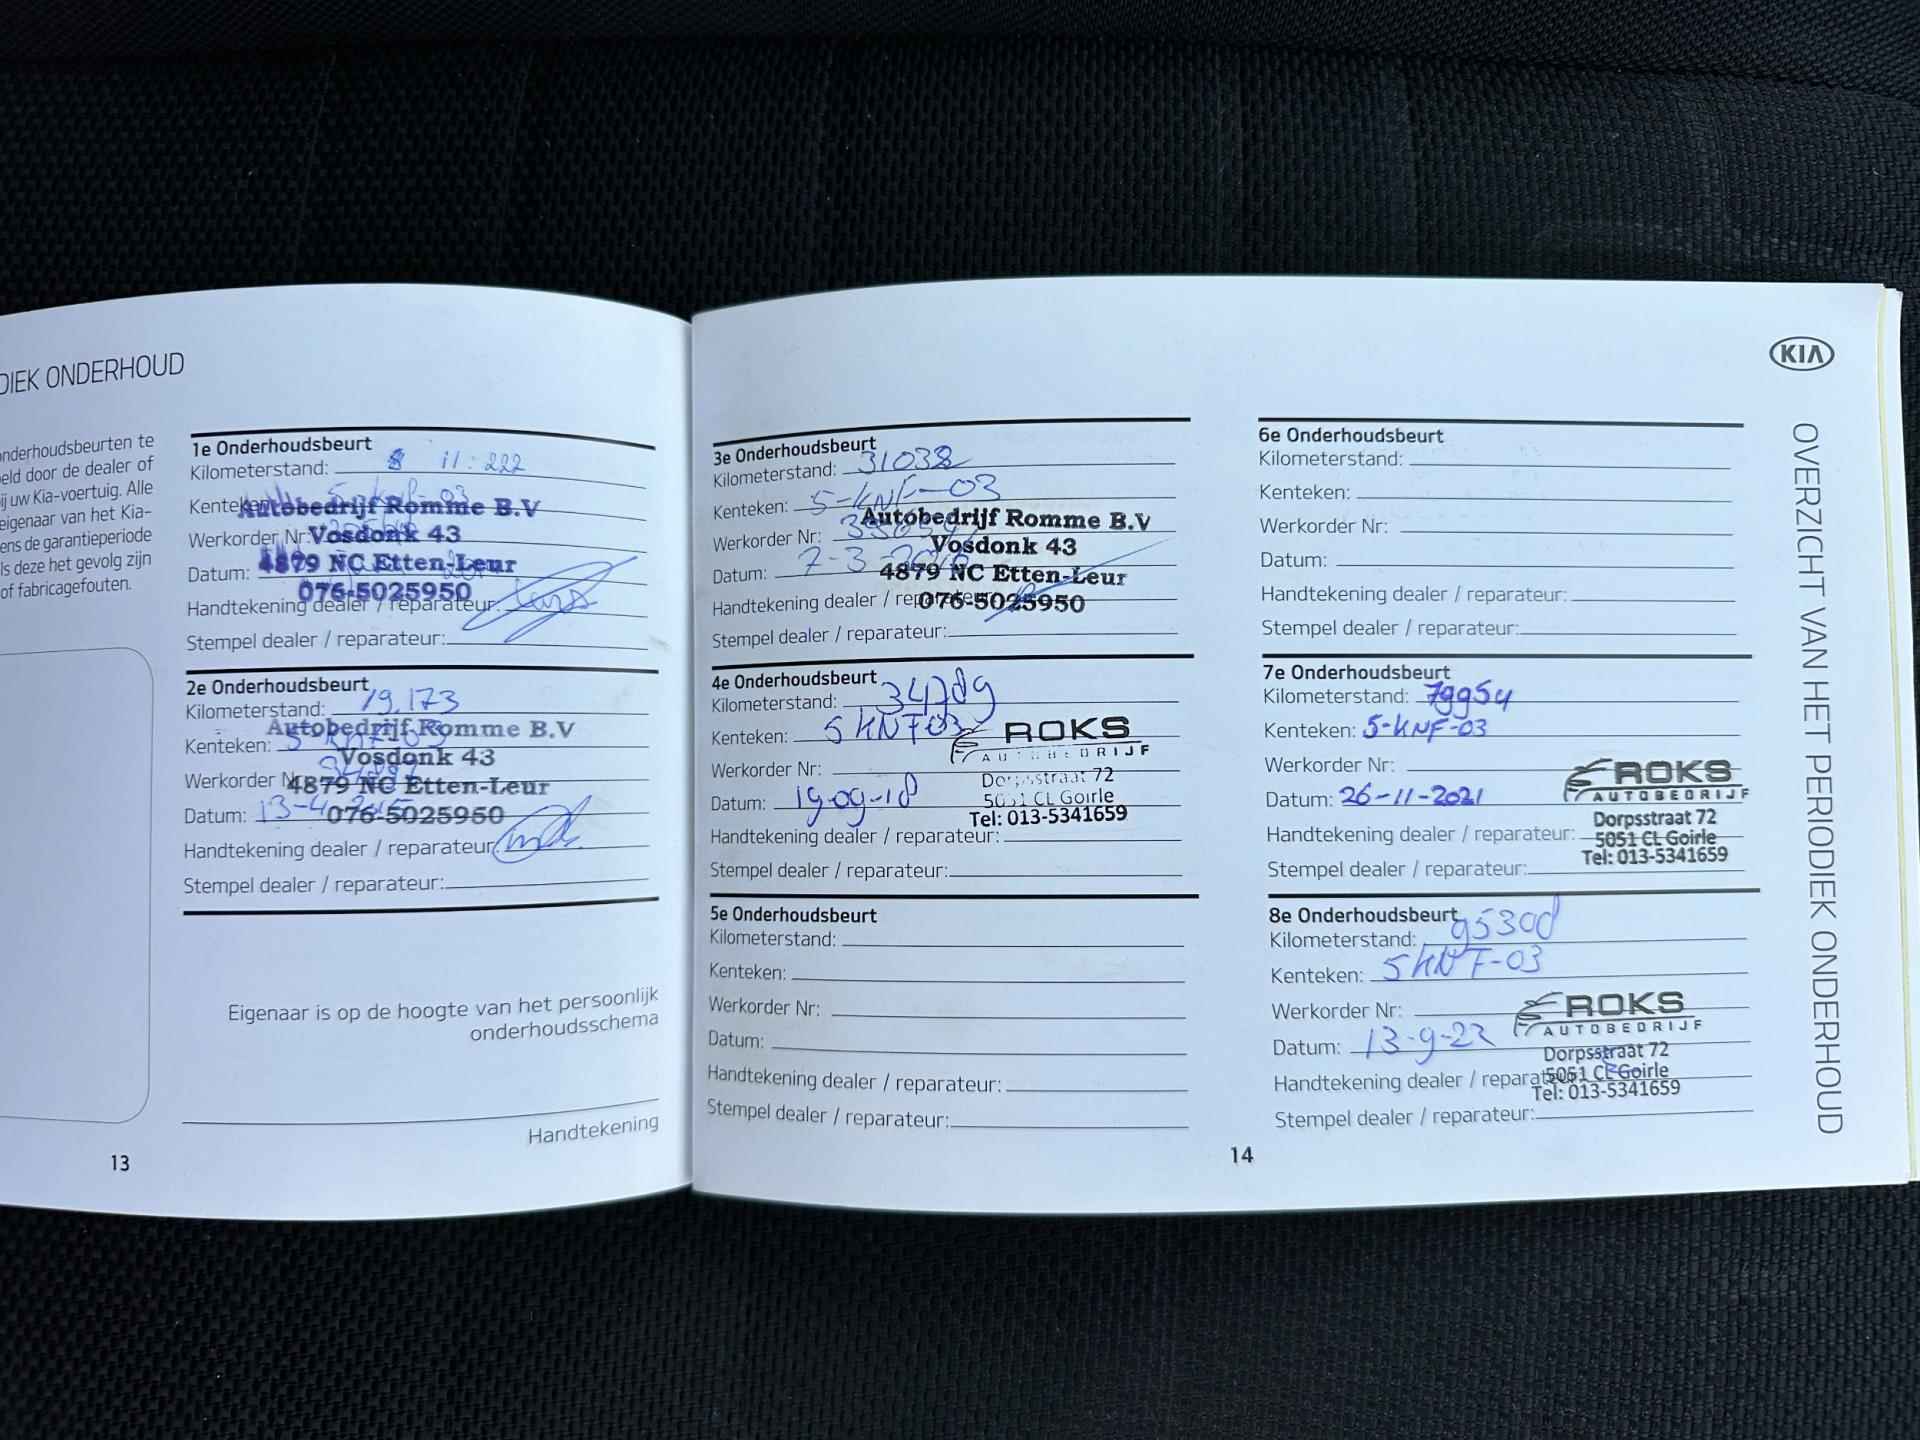 DIEK ONDERHOUD
onderhoudsbeurten te
eld door de dealer of
ij uw Kia-voertuig. Alle
eigenaar van het Kia-
ens de garantieperiode
ls deze het gevolg zijn
of fabricagefouten.
1e Onderhoudsbeurt
Kilometerstand: 11.222
Kenteken:
Autobedrijf Romme B.V
Werkorder Nr:
Vosdonk 43
4879 NC Etten-Leur
Datum:
076-5025950
Handtekening dealer / reparateur:
Stempel dealer / reparateur:
2e Onderhoudsbeurt
Kilometerstand: 19.173
Autobedrijf Romme B.V
Kenteken: 5-KNF-03
Vosdonk 43
Werkorder Nr:
4879 NC Etten-Leur
Datum: 13-4-
076-5025950
Handtekening dealer / reparateur:
Stempel dealer / reparateur:
Eigenaar is op de hoogte van het persoonlijk
onderhoudsschema
Handtekening
13
3e Onderhoudsbeurt
Kilometerstand: 31038
Kenteken: 5-KNF-03
Autobedrijf Romme B.V
Werkorder Nr:
Vosdonk 43
Datum: 7-3-
4879 NC Etten-Leur
Handtekening dealer / reparateur:
076-5025950
Stempel dealer / reparateur:
4e Onderhoudsbeurt
Kilometerstand:
Kenteken: 5KNF03
ROKS
AUTOBEDRIJF
Werkorder Nr:
Dorpsstraat 72
Datum: 19-09-18
5051 CL Goirle
Tel: 013-5341659
Handtekening dealer / reparateur:
Stempel dealer / reparateur:
5e Onderhoudsbeurt
Kilometerstand:
Kenteken:
Werkorder Nr:
Datum:
Handtekening dealer / reparateur:
Stempel dealer / reparateur:
14
6e Onderhoudsbeurt
Kilometerstand:
Kenteken:
Werkorder Nr:
Datum:
Handtekening dealer / reparateur:
Stempel dealer / reparateur:
7e Onderhoudsbeurt
Kilometerstand: 79954
Kenteken: 5-KNF-03
Werkorder Nr:
ROKS
AUTOBEDRIJF
Datum: 26-11-2021
Dorpsstraat 72
Handtekening dealer / reparateur:
5051 CL Goirle
Tel: 013-5341659
Stempel dealer / reparateur:
8e Onderhoudsbeurt
Kilometerstand: 95300
Kenteken: 5KNF-03
Werkorder Nr:
ROKS
AUTOBEDRIJF
Datum: 13-9-22
Dorpsstraat 72
5051 CL Goirle
Handtekening dealer / reparateur:
Tel: 013-5341659
Stempel dealer / reparateur:
KIA
OVERZICHT VAN HET PERIODIEK ONDERHOUD